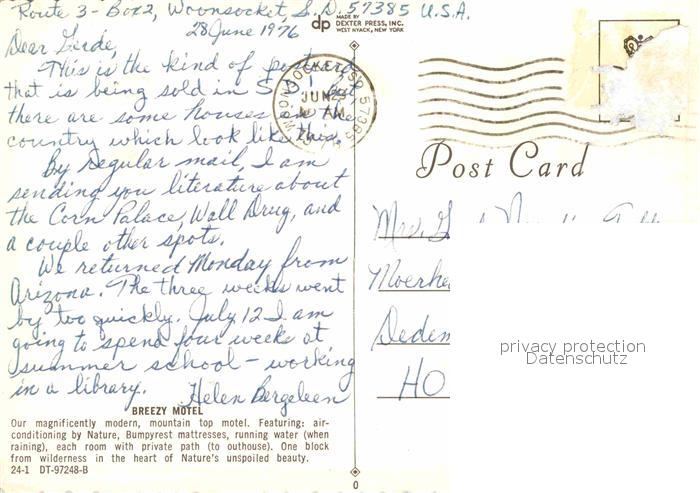 Route 3 - Box 2, Woonsocket, S.D. 57385 U.S.A.
28 June 1976
dp MADE BY
DEXTER PRESS, INC.
WEST NYACK, NEW YORK
Dear Gerde,
This is the kind of postcard
that is being sold in S.D., but
there are some houses in the
country which look like this.
By regular mail, I am
sending you literature about
the Corn Palace, Wall Drug, and
a couple other spots.
We returned Monday from
Arizona. The three weeks went
by too quickly. July 12 I am
going to spend four weeks at
summer school - working
in a library. Helen Bergeleen
BREEZY MOTEL
Our magnificently modern, mountain top motel. Featuring: air-
conditioning by Nature, Bumpyrest mattresses, running water (when
raining), each room with private path (to outhouse). One block
from wilderness in the heart of Nature's unspoiled beauty.
24-1 DT-97248-B
WOONSOCKET SD 57385
JUN
Post Card
Mrs. G
Moerke
Dedem
HO
privacy protection
Datenschutz